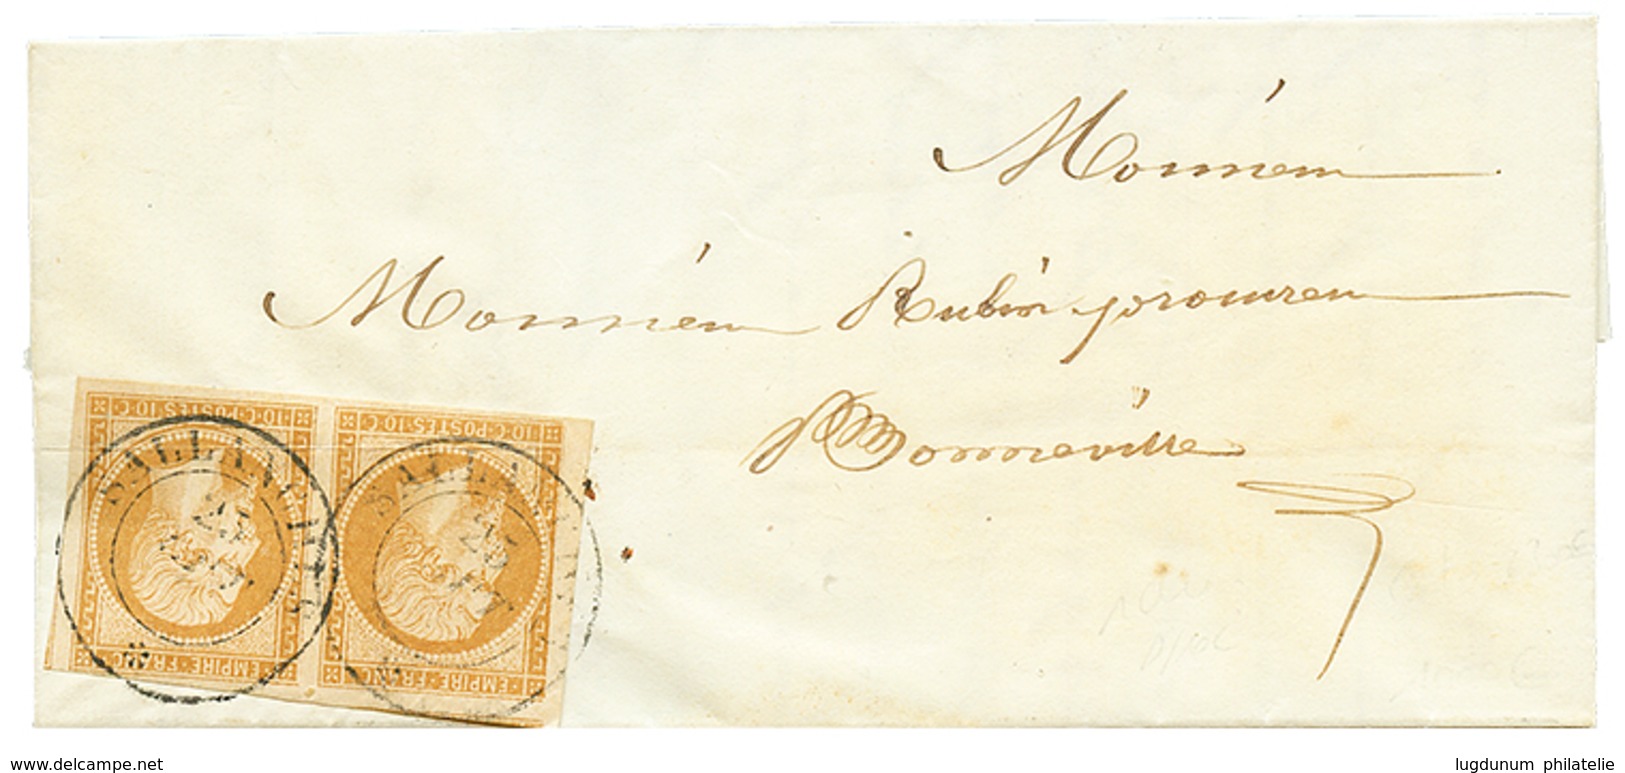 Monsieur
Monsieur Rubin procureur
Bonneville
10·C·POSTES·10·C·
10·C·POSTES·10·C·
SALLANCHES
25
SALLANCHES
25
EMPIRE·FRANC·
EMPIRE·FRANC·
www.delcampe.net
lugdunum philatelie